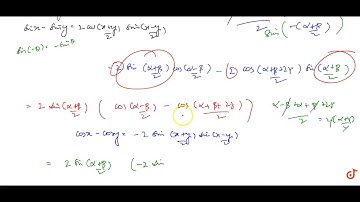 sinx - siny = 2 cos (x+y)/2 sin (x-y)/2
sin(-θ) = -sinθ
sin (-(α+β)/2)
2 sin (α+β)/2 cos (α-β)/2 - 2 cos (α+β+2γ)/2 sin (α+β)/2
= 2 sin (α+β)/2 ( cos (α-β)/2 - cos (α+β+2γ)/2 )
α-β+α+β+2γ
cosx - cosy = -2 sin (x+y)/2 sin (x-y)/2
= 2 sin (α+β)/2 ( -2 sin